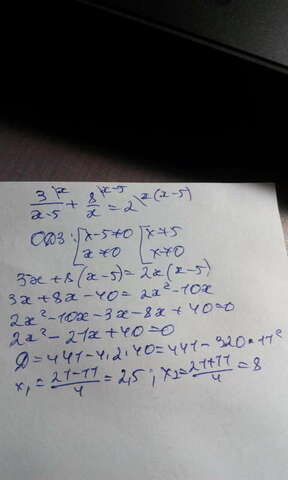 3\x/(x-5) + 8\x-5/x = 2\x(x-5)
ОДЗ: [x-5≠0 [x≠5
[x≠0 [x≠0
3x+8(x-5)=2x(x-5)
3x+8x-40=2x²-10x
2x²-10x-3x-8x+40=0
2x²-21x+40=0
D=441-4·2·40=441-320=11²
x₁=(21-11)/4=2,5; x₂=(21+11)/4=8